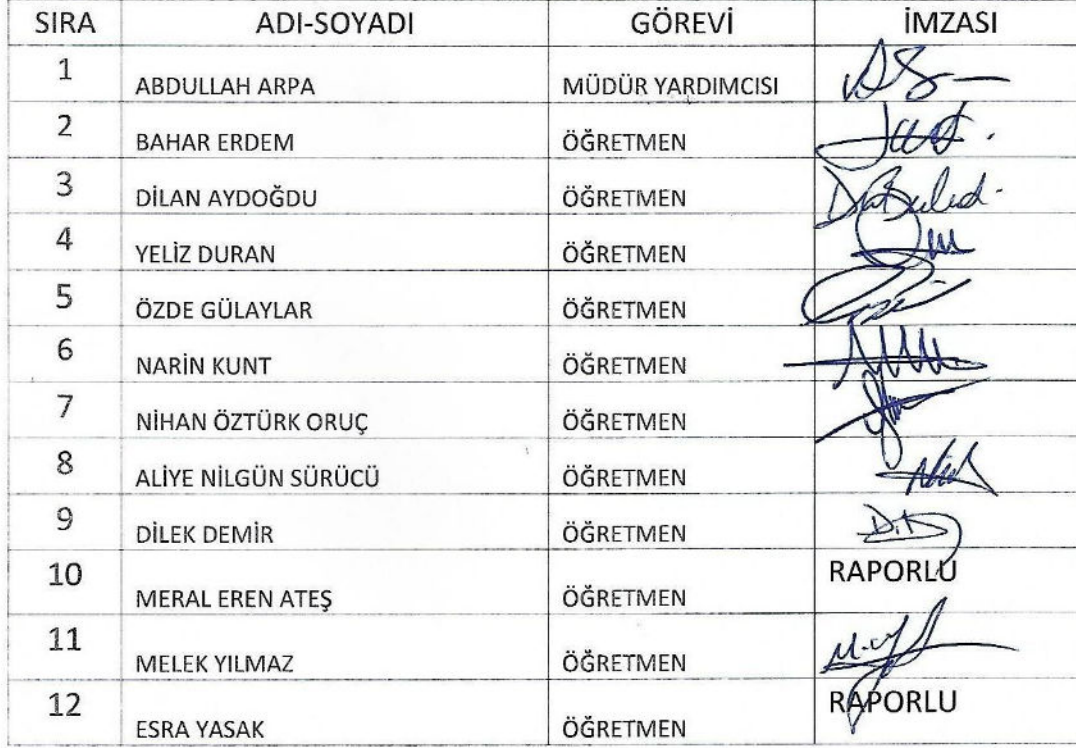 SIRA ADI-SOYADI GÖREVİ İMZASI
1 ABDULLAH ARPA MÜDÜR YARDIMCISI
2 BAHAR ERDEM ÖĞRETMEN
3 DİLAN AYDOĞDU ÖĞRETMEN
4 YELİZ DURAN ÖĞRETMEN
5 ÖZDE GÜLAYLAR ÖĞRETMEN
6 NARİN KUNT ÖĞRETMEN
7 NİHAN ÖZTÜRK ORUÇ ÖĞRETMEN
8 ALİYE NİLGÜN SÜRÜCÜ ÖĞRETMEN
9 DİLEK DEMİR ÖĞRETMEN
10 MERAL EREN ATEŞ ÖĞRETMEN RAPORLU
11 MELEK YILMAZ ÖĞRETMEN
12 ESRA YASAK ÖĞRETMEN RAPORLU